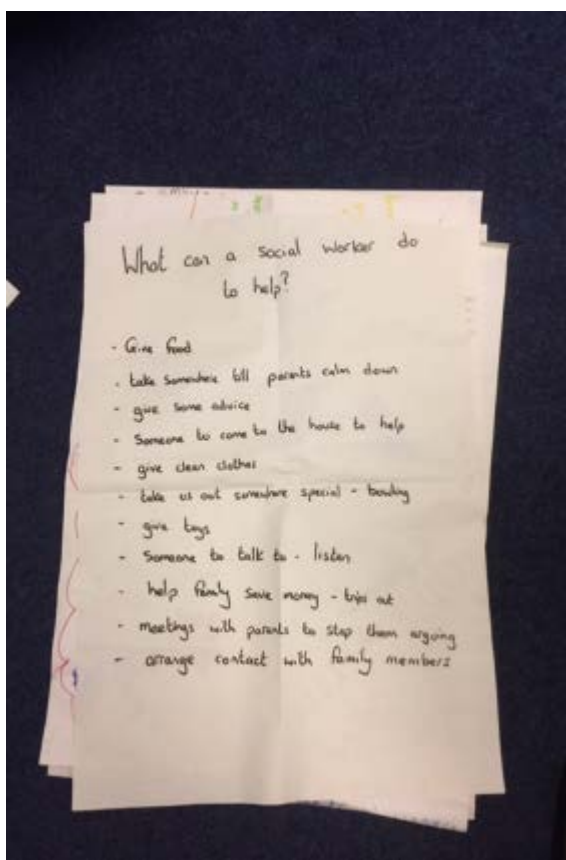 What can a social worker do
to help?
- Give food
- take somewhere till parents calm down
- give some advice
- Someone to come to the house to help
- give clean clothes
- take us out somewhere special - bowling
- give toys
- Someone to talk to - listen
- help family save money - trips out
- meetings with parents to stop them argoing
- arrange contact with family members